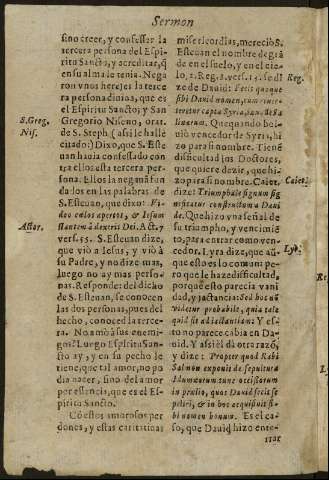 Sermon
sino creer, y confessar la
tercera persona del Espi-
ritu Sancto, y acreditar, q̃
en su alma le tenia. Nega
ron vnos herejes la terce
ra persona diuina, que es
el Espiritu Sancto; y San
S. Greg.
Nis.
Gregorio Niseno, orat.
de S. Steph. (assi le halle
citado:) Dixo, que S. Este
uan hauia confessado con
tra ellos esta tercera per-
sona. Ellos la negauã fun
dados en las palabras de
S. Esteuan, que dixo: Vi-
deo cælos apertos, & Iesum
Actor.
stantem à dextris Dei. Act. 7
vers. 55. S. Esteuan dize,
que viò a Iesus, y viò à
su Padre, y no dize mas,
luego no ay mas perso-
nas. Responde: del dicho
de S. Esteuan, se conocen
las dos personas, pues del
hecho, conoced la terce-
ra. No amò a sus enemi-
gos? Luego Espiritu San-
sto ay, y en su pecho le
tiene, que tal amor, no po
dia nacer, sino del amor
por essencia, que es el Es-
piritu Sancto.
Cõ estos amorosos per
dones, y estas caritatiuas
misericordias, mereciò S.
Esteuan el nombre de grã
de en el suelo, y en el cie-
lo, 2. Reg. 8. vers. 13. se dize
Reg.
de Dauid: Fecit quoque
sibi Dauid nomen, cum reuer-
teretur capta Syria, in valle Sa
linarum. Que quando bol-
uiò vencedor de Syria, hi
zo para si nombre. Tiene
dificultad los Doctores,
que quiere dezir, que hi-
zo para si nombre. Caiet.
Caiet.
dize: Triumphale signum sig
nificatur constructum à Daui
de. Que hizo vna señal de
su triumpho, y vencimie
to, para entrar como ven-
cedor. Lyra dize, que aũ
Lyr.
que esto es lo comun: pe
ro que le haze dificultad,
porque esto parecia vani
dad, y jactancia: Sed hoc nõ
videtur probabile, quia tale
quid sit ad iactantiam: Y es-
to no parece cabia en Da-
uid. Y assi el dà otra razò,
y dize: Propter quod Rabi
Salmon exponit de sepultura
Idumæorum tunc occisorum
in prælio, quos Dauid fecit se
peliri, & in hoc acquisiuit si-
bi nomen bonum. Es el ca-
so, que Dauid hizo ente-
rrar